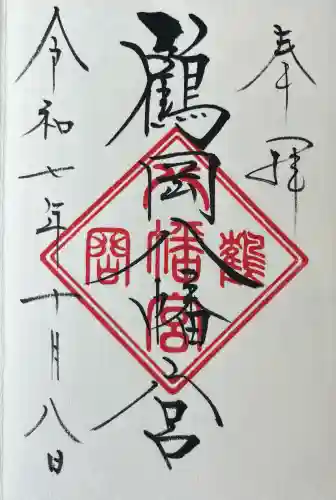 奉拝
鶴岡八幡宮
令和七年十月八日
鶴岡八幡宮